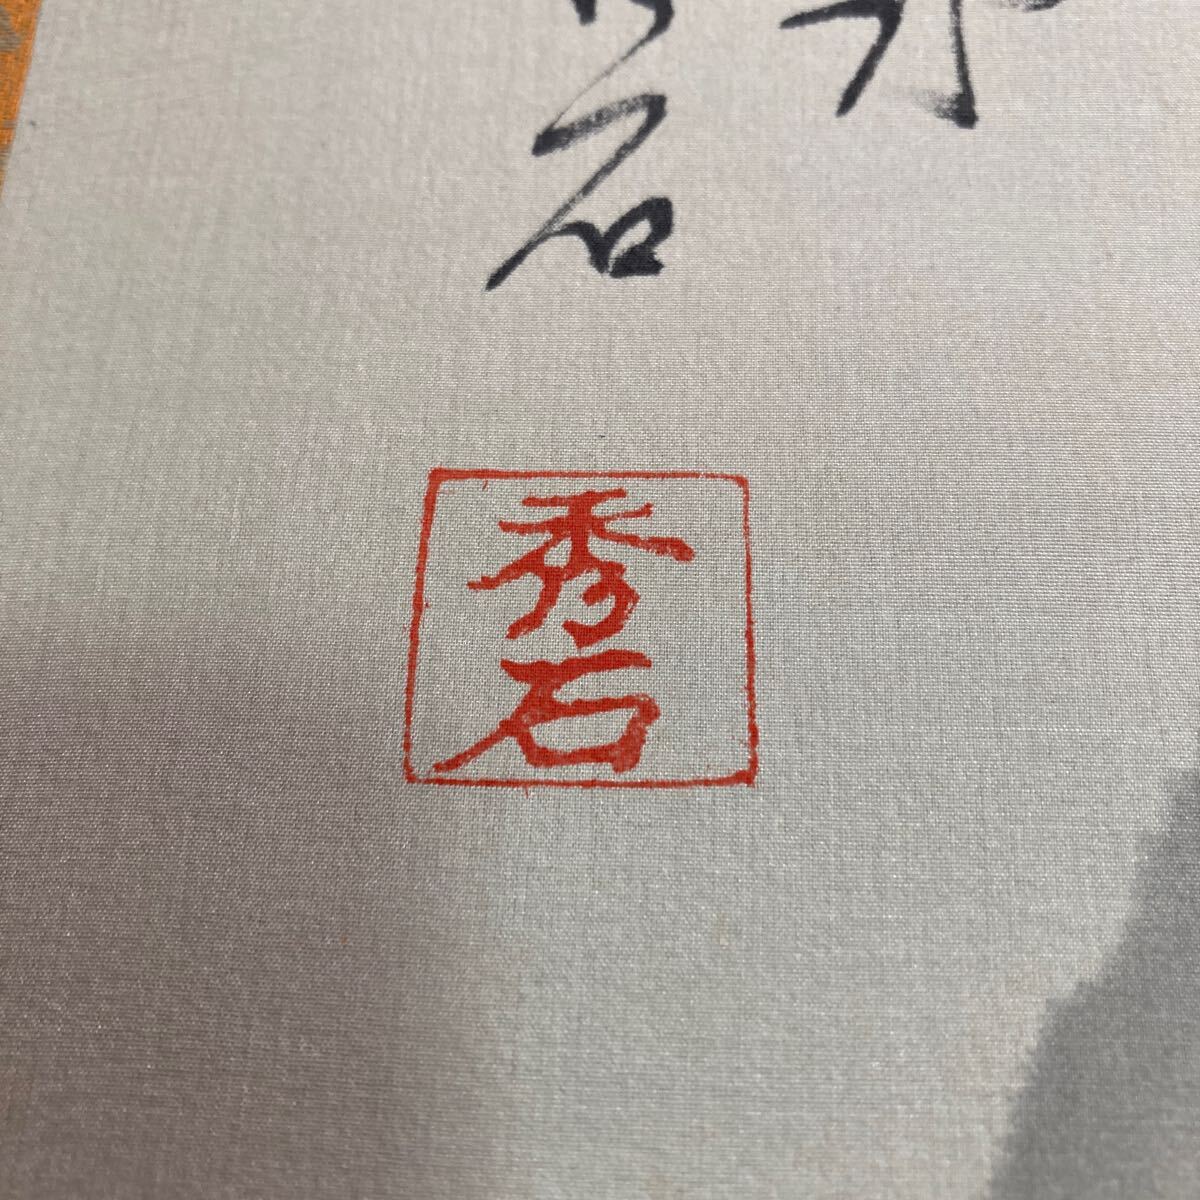 石
秀石